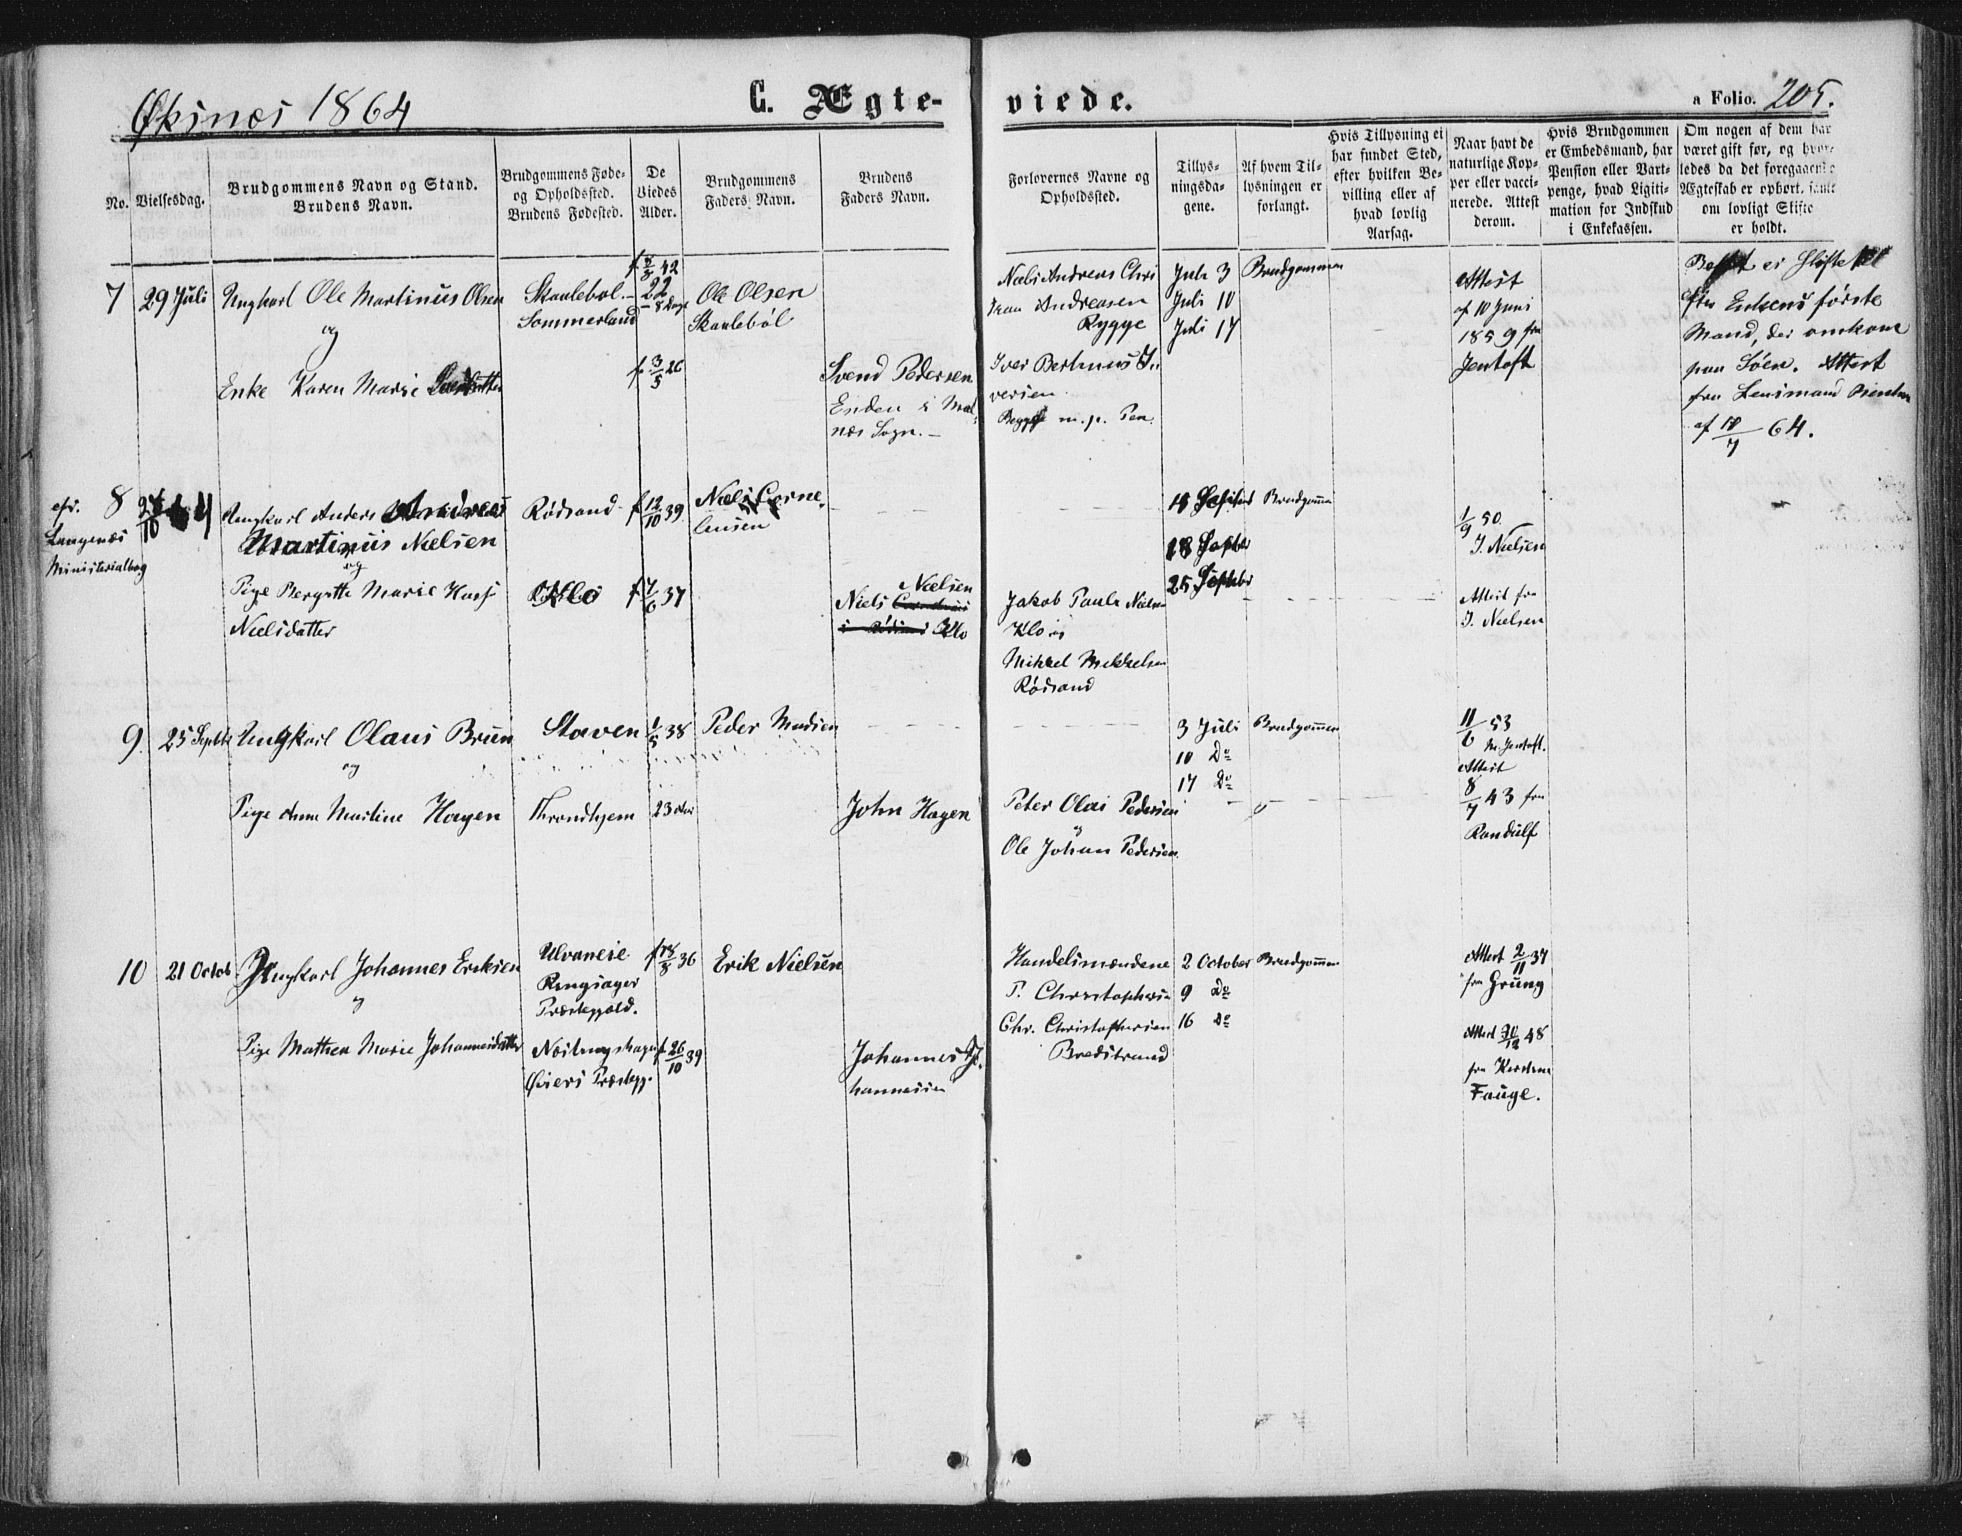 Øksnæs 1864
C. Ægte-
viede.
a Folio. 205.
No.
Vielsesdag.
Brudgommens Navn og Stand.
Brudens Navn.
Brudgommens Føde-
og Opholdssted.
Brudens Fødested.
De
Viedes
Alder.
Brudgommens
Faders Navn.
Brudens
Faders Navn.
Forlovernes Navne og
Opholdssted.
Tillys-
ningsda-
gene.
Af hvem Til-
lysningen er
forlangt.
Hvis Tillysning ei
har fundet Sted,
efter hvilken Be-
villing eller af
hvad lovlig
Aarsag.
Naar havt de
naturlige Kop-
per eller vacci-
nerede. Attest
derom.
Hvis Brudgommen
er Embedsmand, har
Pension eller Vart-
penge, hvad Ligiti-
mation for Indskud
i Enkekassen.
Om nogen af dem har
været gift før, og hvor-
ledes da det foregaaende
Ægteskab er ophørt, samt
om lovligt Skifte
er holdt.
7
29 Juli
Ungkarl Ole Martinus Olsen
og
Enke Karen Marie
Skaulebøl
Sommerland
22
f 3/5 26
Ole Olsen
Skaulebøl
Svend Pedersen
Enden i Mal-
næs Sogn.
Niels Andreas Chri
Andreasen
Rygge
Iver Bertinus I
versen
m. p. Pen.
Juli 3
Juli 10
Juli 17
Brudgommen
Attest
af 10 Juni
1859 fra
Jentoft
ei Skifte
Enkens første
Mand, der omkom
paa Søen. Attest
fra Lensmand
af 64.
cfr.
Langenæs
Ministerialbog
8
Ungkarl Anders Andreas
Martinus Nielsen
og
Pige Bergitte Marie
Nielsdatter
Rødsand
Klo
f 12/10 39
f 7/6 37
Niels Corne-
liusen
Nielsen
Niels Cornelius
Klo
Jakob Paul Nielsen
Klo og
Mikkel Mikkelsen
Rødsand
18 Septbr
25 Septbr
Brudgommen
1/9 50.
J. Nielsen
Attest fra
J. Nielsen
9
25 Septbr
Ungkarl Olaus Brun
og
Pige Anne Martine Hagen
Staven
Throndhjem
1/5 38
23
Peder Madsen
John Hagen
Peter Olai Pedersen
og
Ole Johan Pedersen
3 Juli
10 Do
17 Do
Brudgommen
11/6 53
M. Jentoft.
Attest
8/7 43 fra
Randulf
10
21 Octob
Ungkarl Johannes Eriksen
og
Pige Mathea Marie Johannesdatter
Ringsager
Præstegjæld.
Øiers Præstegj.
36
f 26/10 39
Erik Nielsen
Johannes Jo-
hannessen
Handelsmændene
P. Christophersen
Chr. Christophersen
Bredstrand
2 October
9 Do
16 Do
Brudgommen
Attest 2/11 37
fra Grung
Attest 48
fra
Fauge.